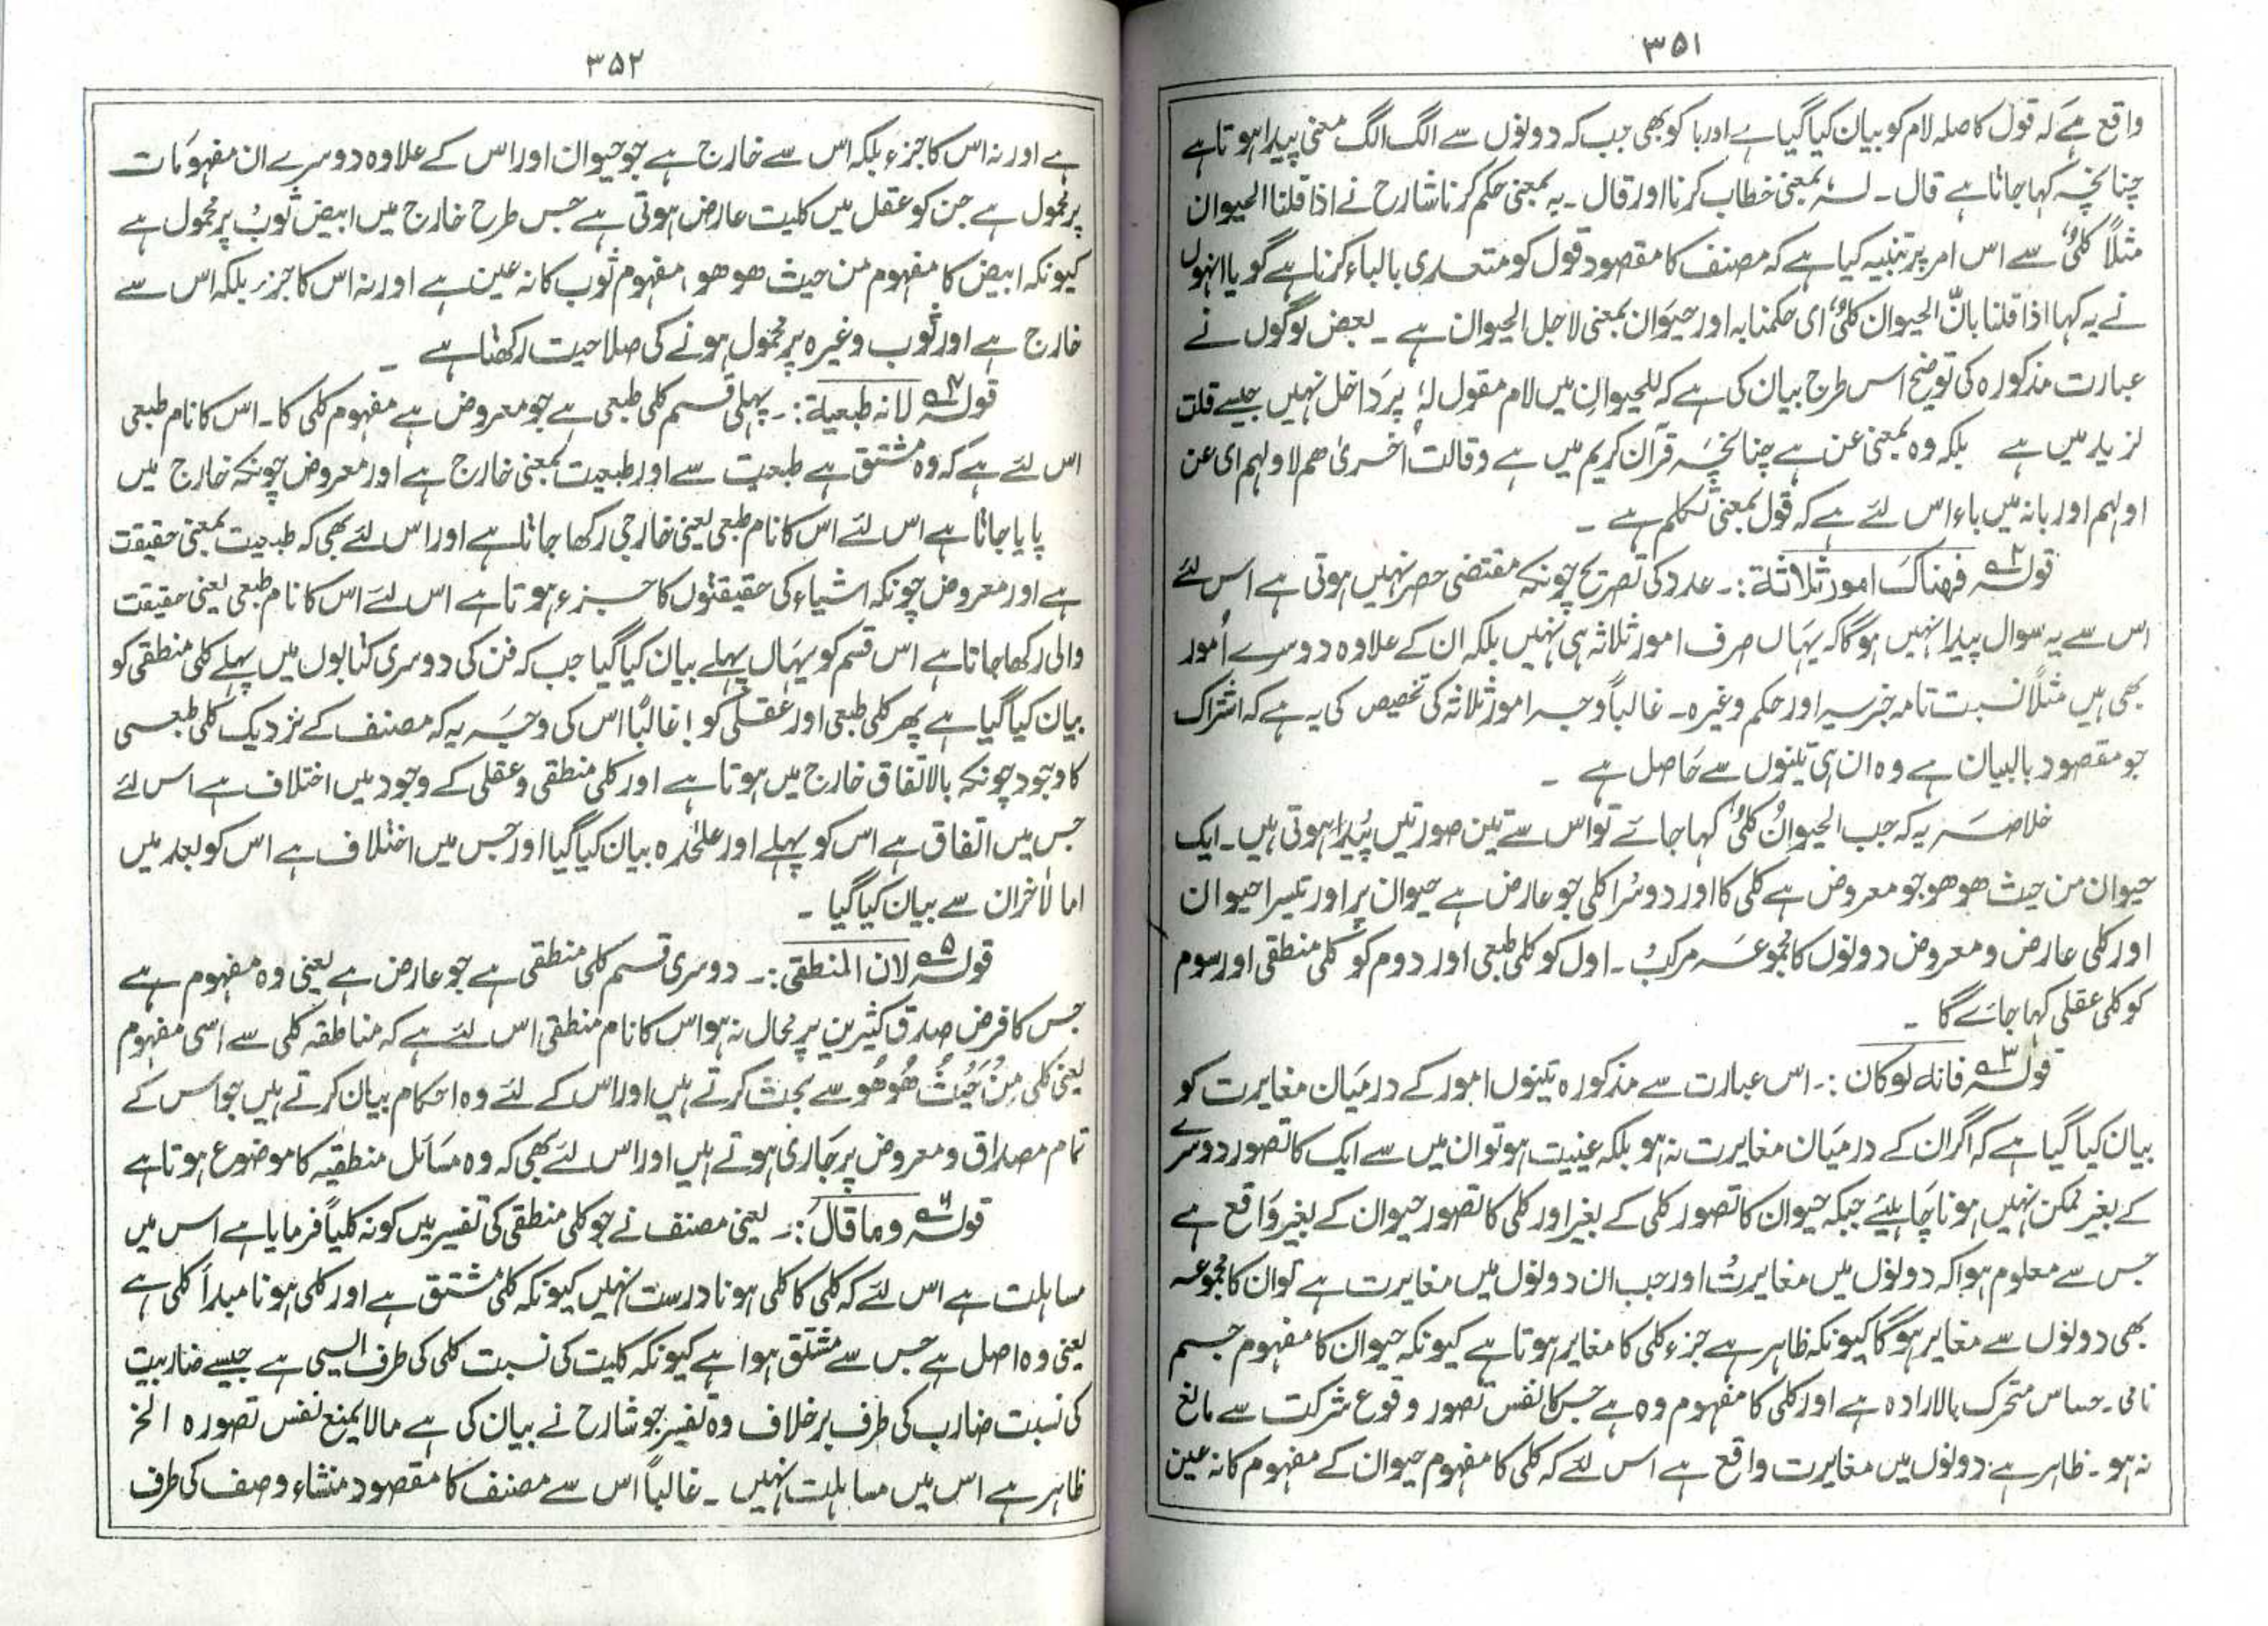 ۳۵۱
واقع ہے کہ قول کا صلہ لام کو بیان کیا گیا ہے اور با کو بھی جب کہ دونوں سے الگ الگ معنی پیدا ہوتا ہے
چنانچہ کہا جاتا ہے قال۔ لہٗ بمعنی خطاب کرنا اور قال۔ بہ بمعنی حکم کرنا شارح نے اذا قلنا الحیوان
مثلاً کلیٌ سے اس امر پر تنبیہ کیا ہے کہ مصنف کا مقصود قول کو متعدی بالباء کرنا ہے گویا انہوں
نے یہ کہا اذا قلنا بانّ الحیوان کلیٌ ای حکمنا بہ اور حیوان بمعنی لاجل الحیوان ہے ۔ بعض لوگوں نے
عبارت مذکورہ کی توضیح اس طرح بیان کی ہے کہ للحیوانِ میں لام مقول لہٗ پر داخل نہیں جیسے قلت
لزید میں ہے بلکہ وہ بمعنی عن ہے چنانچہ قرآن کریم میں ہے وقالت اُخریٰ ھم لاولہم ای عن
اولہم اور بانہ میں باء اس لئے ہے کہ قول بمعنی تکلم ہے ۔
قولہ۲ فھناک امور ثلاثة :۔ عدد کی تصریح چونکہ مقتضی حصر نہیں ہوتی ہے اس لئے
اس سے یہ سوال پیدا نہیں ہوگا کہ یہاں صرف امور ثلاثہ ہی نہیں بلکہ ان کے علاوہ دوسرے اُمور
بھی ہیں مثلاً نسبت تامہ خبریہ اور حکم وغیرہ۔ غالباً وجہ امور ثلاثہ کی تخصیص کی یہ ہے کہ اشتراک
جو مقصود بالبیان ہے وہ ان ہی تینوں سے حاصل ہے ۔
خلاصہ یہ کہ جب الحیوانُ کلیٌ کہا جائے تو اس سے تین صورتیں پیدا ہوتی ہیں۔ ایک
حیوان من حیث ھوھو جو معروض ہے کلی کا اور دوسرا کلی جو عارض ہے حیوان پر اور تیسرا حیوان
اور کلی عارض و معروض دونوں کا مجموعہ مرکب ۔ اول کو کلی طبعی اور دوم کو کلی منطقی اور سوم
کو کلی عقلی کہا جائے گا ۔
قولہ۳ فانہ لوکان :۔ اس عبارت سے مذکورہ تینوں امور کے درمیان مغایرت کو
بیان کیا گیا ہے کہ اگر ان کے درمیان مغایرت نہ ہو بلکہ عینیت ہو تو ان میں سے ایک کا تصور دوسرے
کے بغیر ممکن نہیں ہونا چاہیئے جبکہ حیوان کا تصور کلی کے بغیر اور کلی کا تصور حیوان کے بغیر واقع ہے
جس سے معلوم ہوا کہ دونوں میں مغایرتُ اور جب ان دونوں میں مغایرت ہے تو ان کا مجموعہ
بھی دونوں سے مغایر ہوگا کیونکہ ظاہر ہے جزء کلی کا مغایر ہوتا ہے کیونکہ حیوان کا مفہوم جسم
نامی۔ حساس متحرک بالارادہ ہے اور کلی کا مفہوم وہ ہے جس کا نفس تصور وقوع شرکت سے مانع
نہ ہو ۔ ظاہر ہے دونوں میں مغایرت واقع ہے اس لئے کہ کلی کا مفہوم حیوان کے مفہوم کا نہ عین
۳۵۲
ہے اور نہ اس کا جزء بلکہ اس سے خارج ہے جو حیوان اور اس کے علاوہ دوسرے ان مفہومات
پر محمول ہے جن کو عقل میں کلیت عارض ہوتی ہے جس طرح خارج میں ابیض ثوبُ پر محمول ہے
کیونکہ ابیض کا مفہوم من حیث ھوھو ، مفہوم ثوب کا نہ عین ہے اور نہ اس کا جزء بلکہ اس سے
خارج ہے اور ثوب وغیرہ پر محمول ہونے کی صلاحیت رکھتا ہے ۔
قولہ۴ لانہ طبعیة :۔ پہلی قسم کلی طبعی ہے جو معروض ہے مفہوم کلی کا ۔ اس کا نام طبعی
اس لئے ہے کہ وہ مشتق ہے طبعیت سے اور طبعیت بمعنی خارج ہے اور معروض چونکہ خارج میں
پایا جاتا ہے اس لئے اس کا نام طبعی یعنی خارجی رکھا جاتا ہے اور اس لئے بھی کہ طبعیت بمعنی حقیقت
ہے اور معروض چونکہ اشیاء کی حقیقتوں کا جزء ہوتا ہے اس لئے اس کا نام طبعی یعنی حقیقت
والی رکھا جاتا ہے اس قسم کو یہاں پہلے بیان کیا گیا جب کہ فن کی دوسری کتابوں میں پہلے کلی منطقی کو
بیان کیا گیا ہے پھر کلی طبعی اور عقلی کو ! غالباً اس کی وجہ یہ کہ مصنف کے نزدیک کلی طبعی
کا وجود چونکہ بالاتفاق خارج میں ہوتا ہے اور کلی منطقی و عقلی کے وجود میں اختلاف ہے اس لئے
جس میں اتفاق ہے اس کو پہلے اور علٰحدہ بیان کیا گیا اور جس میں اختلاف ہے اس کو بعد میں
اما لاٰخران سے بیان کیا گیا ۔
قولہ۵ لان المنطقی :۔ دوسری قسم کلی منطقی ہے جو عارض ہے یعنی وہ مفہوم ہے
جس کا فرض صدق کثیرین پر محال نہ ہو اس کا نام منطقی اس لئے ہے کہ مناطقہ کلی سے اسی مفہوم
یعنی کلی مِنُ حَیُثُ ھُوھُو سے بحث کرتے ہیں اور اس کے لئے وہ احکام بیان کرتے ہیں جو اس کے
تمام مصداق و معروض پر جاری ہوتے ہیں اور اس لئے بھی کہ وہ مسائل منطقیہ کا موضوع ہوتا ہے
قولہ۶ وما قال :۔ یعنی مصنف نے جو کلی منطقی کی تفسیر میں کونہ کلیاً فرمایا ہے اس میں
مساہلت ہے اس لئے کہ کلی کا کلی ہونا درست نہیں کیونکہ کلی مشتق ہے اور کلی ہونا مبدأ کلی ہے
یعنی وہ اصل ہے جس سے مشتق ہوا ہے کیونکہ کلیت کی نسبت کلی کی طرف ایسی ہے جیسے ضاربیت
کی نسبت ضارب کی طرف برخلاف وہ تفسیر جو شارح نے بیان کی ہے مالا یمنع نفس تصورہ الخ
ظاہر ہے اس میں مساہلت نہیں ۔ غالباً اس سے مصنف کا مقصود منشاء وصف کی طرف